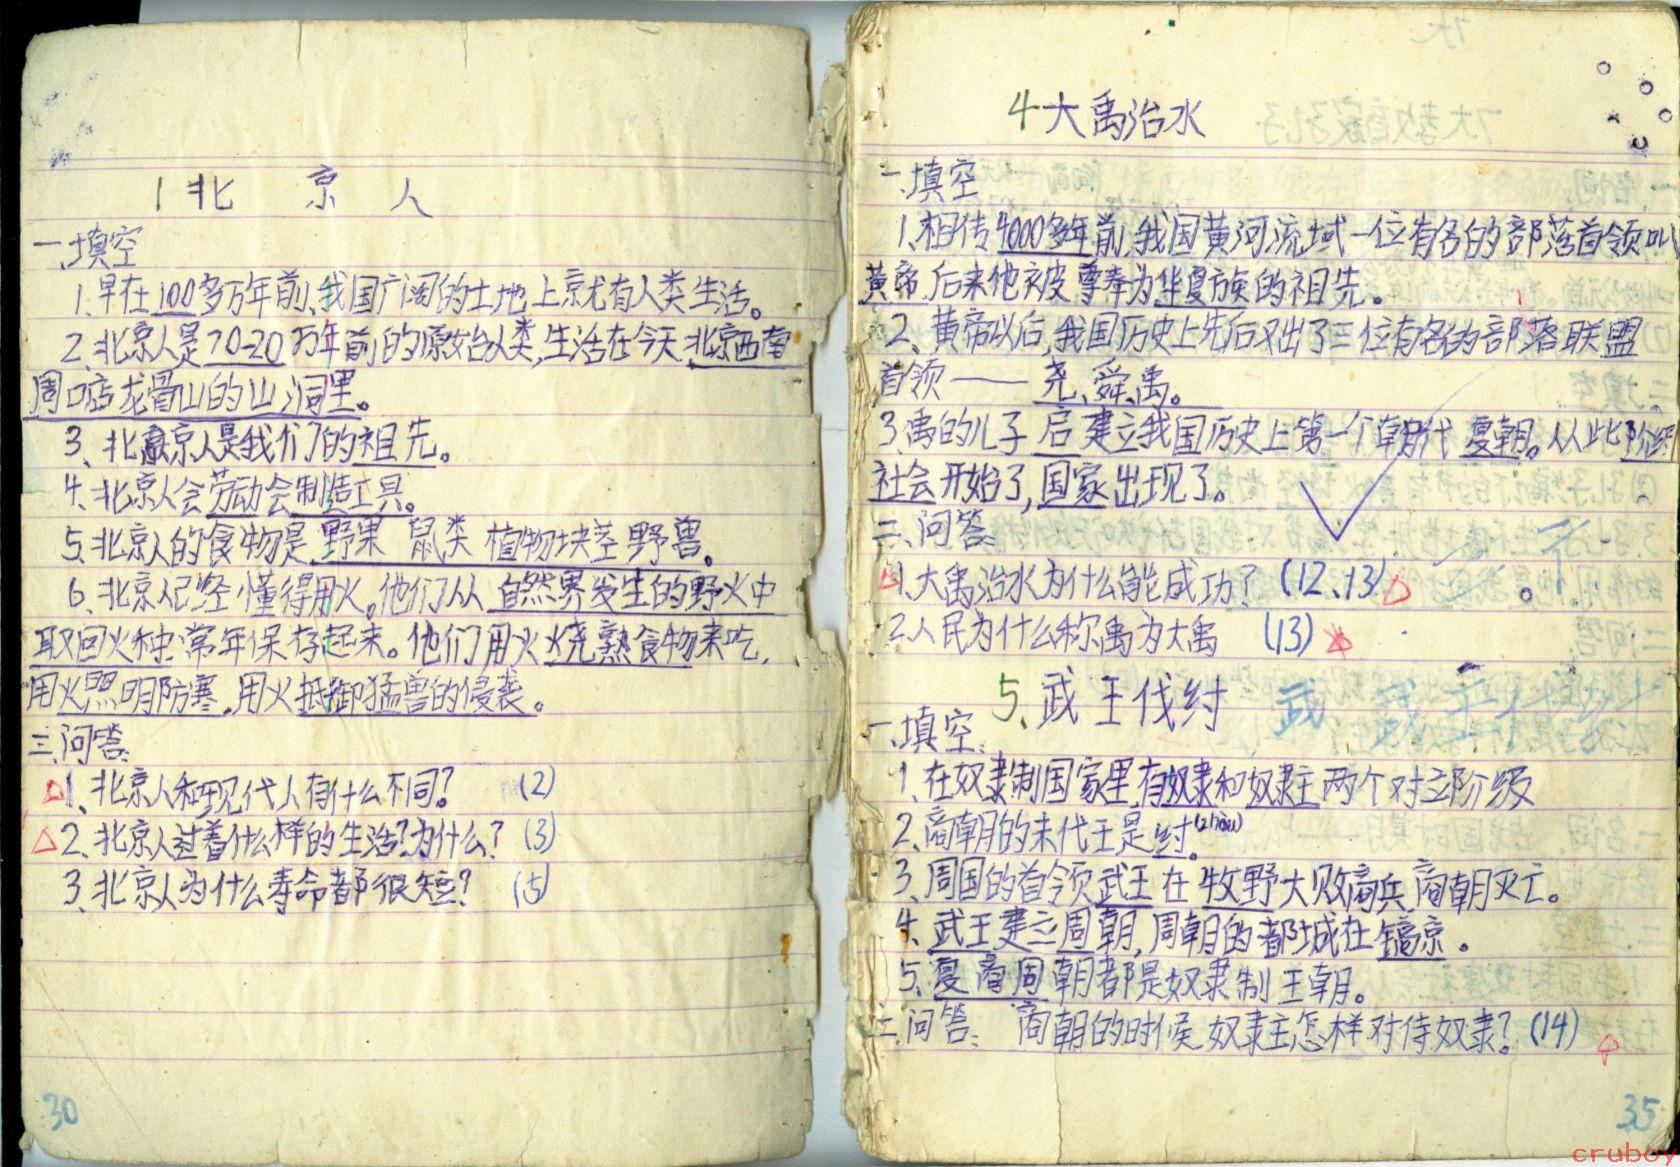 1 北 京 人
一、填空
1、早在100多万年前,我国广阔的土地上京尤有人类生活。
2、北京人是70-20万年前的原始人类,生活在今天北京西南
周口店龙骨山的山洞里。
3、北京人是我们的祖先。
4、北京人会劳动会制造工具。
5、北京人的食物是 野果 鼠类 植物块茎 野兽。
6、北京人已经懂得用火。他们从自然界发生的野火中
取回火种常年保存起来。他们用火烧熟食物来吃,
用火照明防寒,用火抵御猛兽的侵袭。
三、问答:
1、北京人和现代人有什么不同? (2)
2、北京人过着什么样的生活?为什么? (3)
3、北京人为什么寿命都很短? (5)
30
4 大禹治水
一、填空
1、相传4000多年前,我国黄河流域一位有名的部落首领叫
黄帝,后来他被尊奉为华夏族的祖先。
2、黄帝以后,我国历史上先后又出了三位有名的部落联盟
首领——尧、舜、禹。
3、禹的儿子启建立我国历史上第一个朝代 夏朝。从此阶级
社会开始了,国家出现了。
二、问答:
1、大禹治水为什么能成功? (12、13)
2、人民为什么称禹为大禹 (13)
5、武王伐纣 武 武王伐纣
一、填空:
1、在奴隶制国家里,有奴隶和奴隶主两个对立阶级
2、商朝的末代王是纣(zhòu)。
3、周国的首领武王在牧野大败商兵,商朝灭亡。
4、武王建立周朝,周朝的都城在镐京。
5、夏商周朝都是奴隶制王朝。
二、问答: 商朝的时候,奴隶主怎样对待奴隶? (14)
35
cruboy